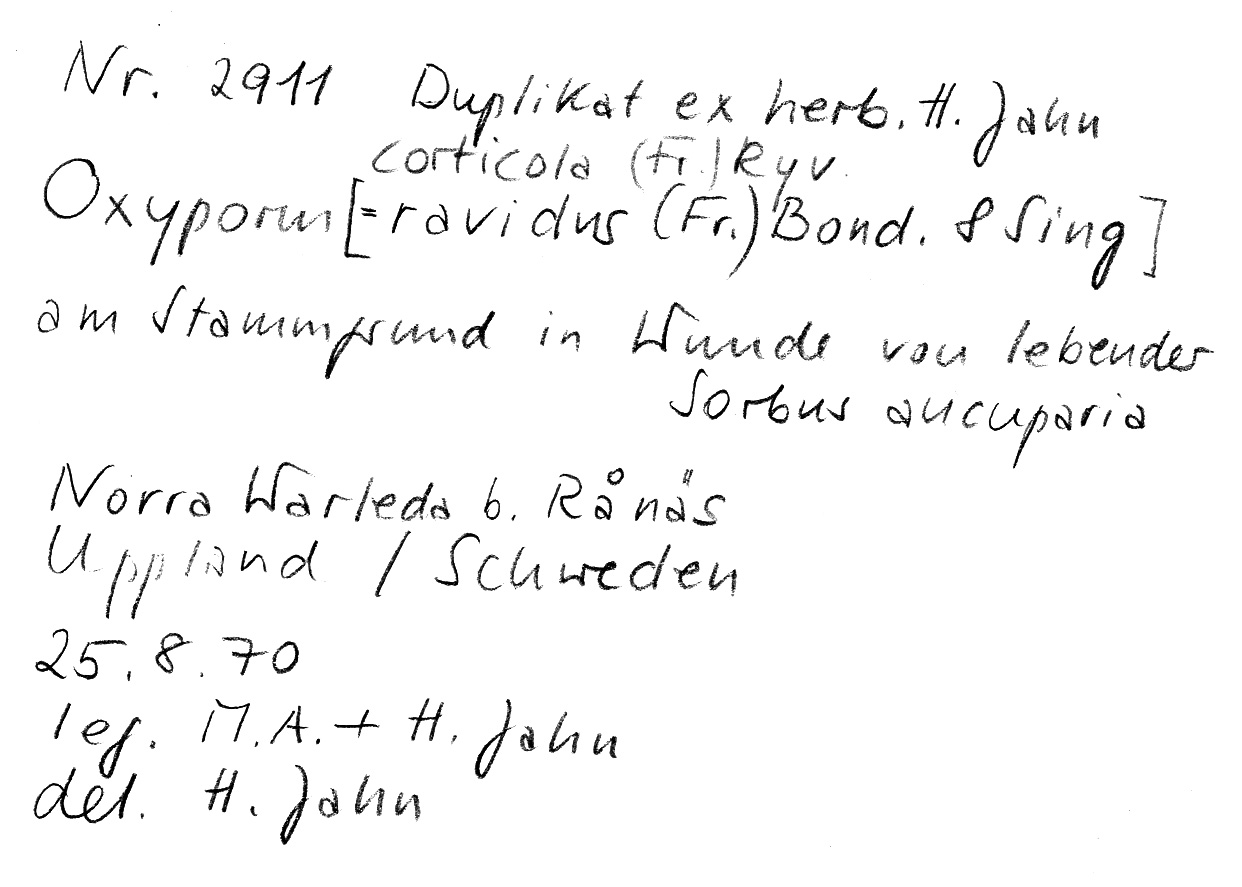 Nr. 2911 Duplikat ex herb. H. Jahn
corticola (Fr.) Ryv.
Oxyporus [= ravidus (Fr.) Bond. & Sing]
am Stammgrund in Wunde von lebender
Sorbus aucuparia
Norra Warleda b. Rånäs
Uppland / Schweden
25.8.70
leg. M.A. + H. Jahn
det. H. Jahn